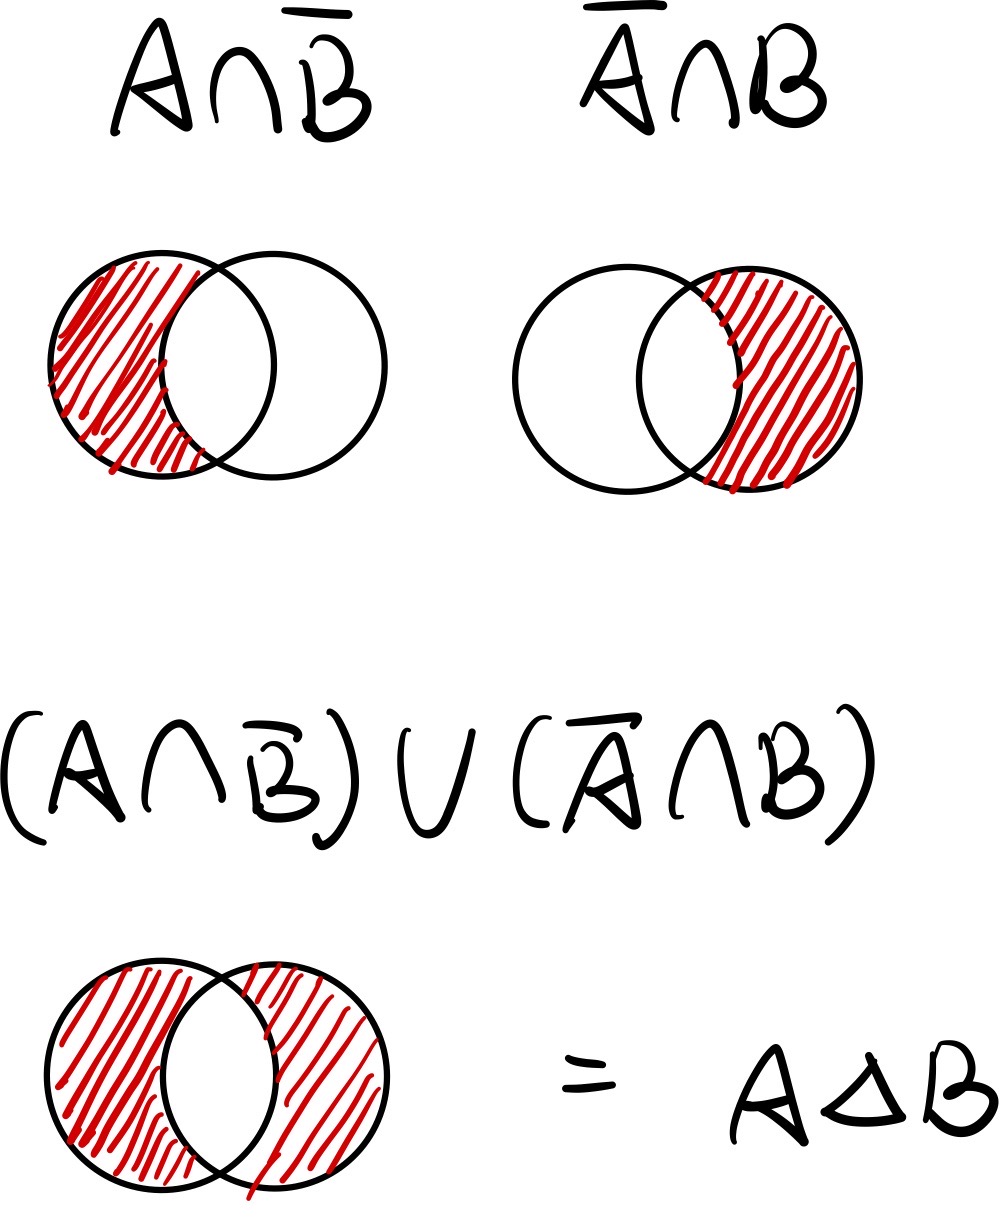 A∩B̅ A̅∩B
(A∩B̅)∪(A̅∩B)
= A△B